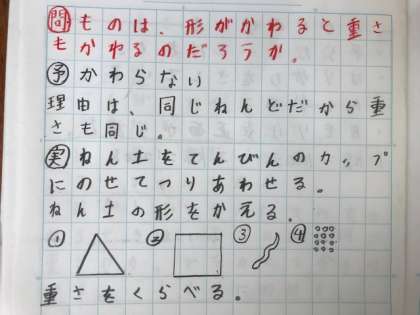 問ものは、形がかわると重さ
もかわるのだろうか。
予かわらない
理由は、同じねんどだから重
さも同じ。
実ねん土をてんびんのカップ
にのせてつりあわせる。
ねん土の形をかえる。
① ② ③ ④
重さをくらべる。